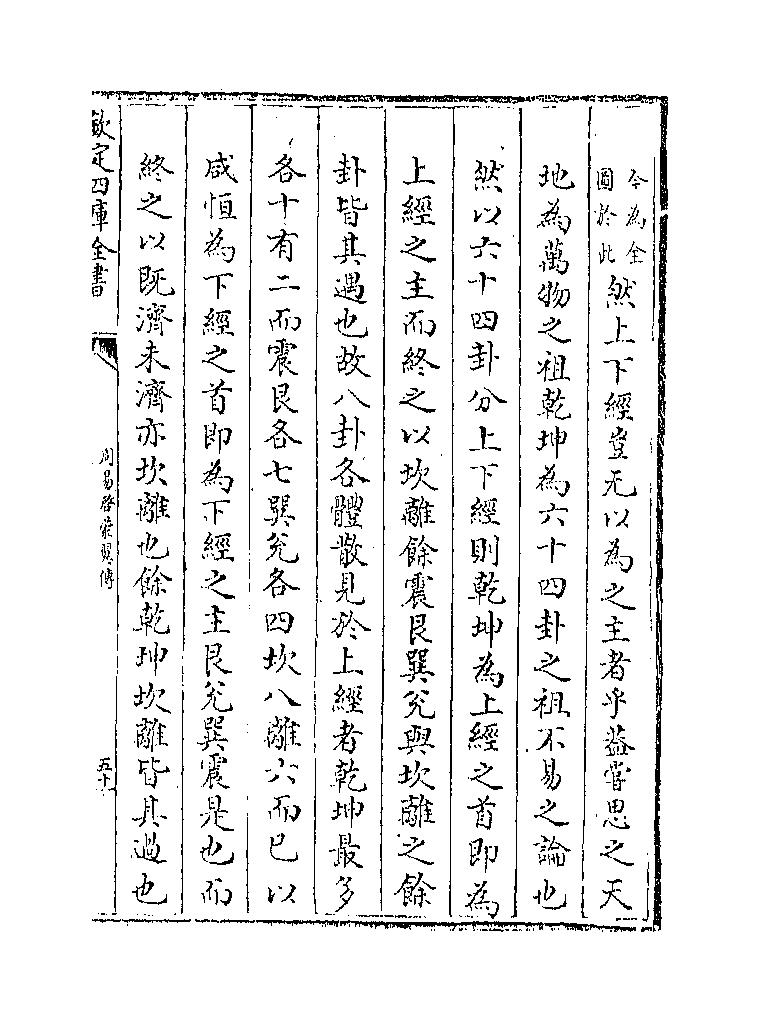 今為全
圖於此
然上下經豈无以為之主者乎葢嘗思之天
地為萬物之祖乾坤為六十四卦之祖不易之論也
然以六十四卦分上下經則乾坤為上經之首即為
上經之主而終之以坎離餘震艮巽兊與坎離之餘
卦皆其遇也故八卦各體散見於上經者乾坤最多
各十有二而震艮各七巽兊各四坎八離六而已以
咸恒為下經之首即為下經之主艮兊巽震是也而
終之以既濟未濟亦坎離也餘乾坤坎離皆其過也
欽定四庫全書
周易啓蒙翼傳
五十